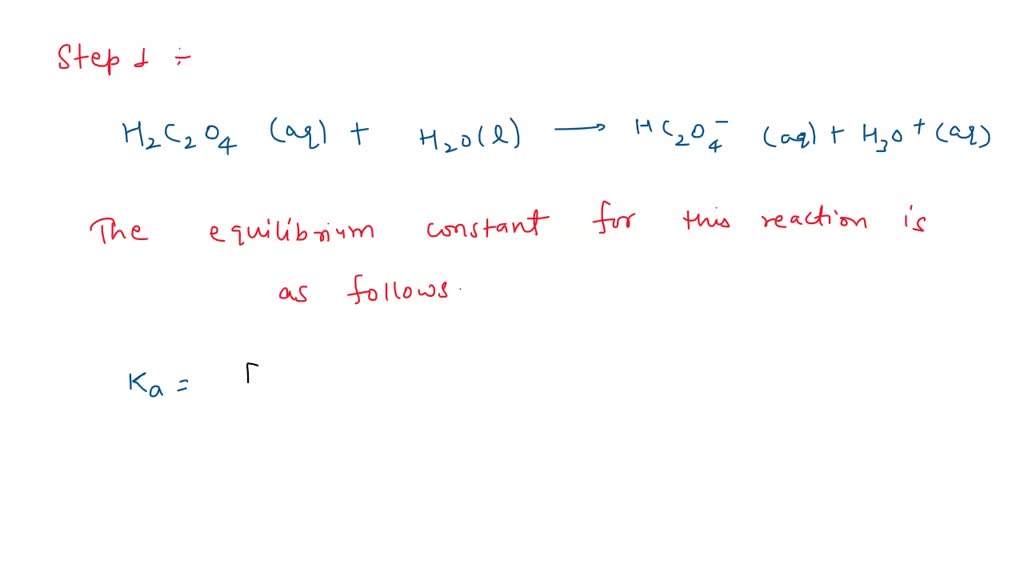 Step 1 ÷
H₂C₂O₄ (aq) + H₂O(l) → HC₂O₄⁻ (aq) + H₃O⁺ (aq)
The equilibrium constant for this reaction is
as follows.
Ka = [